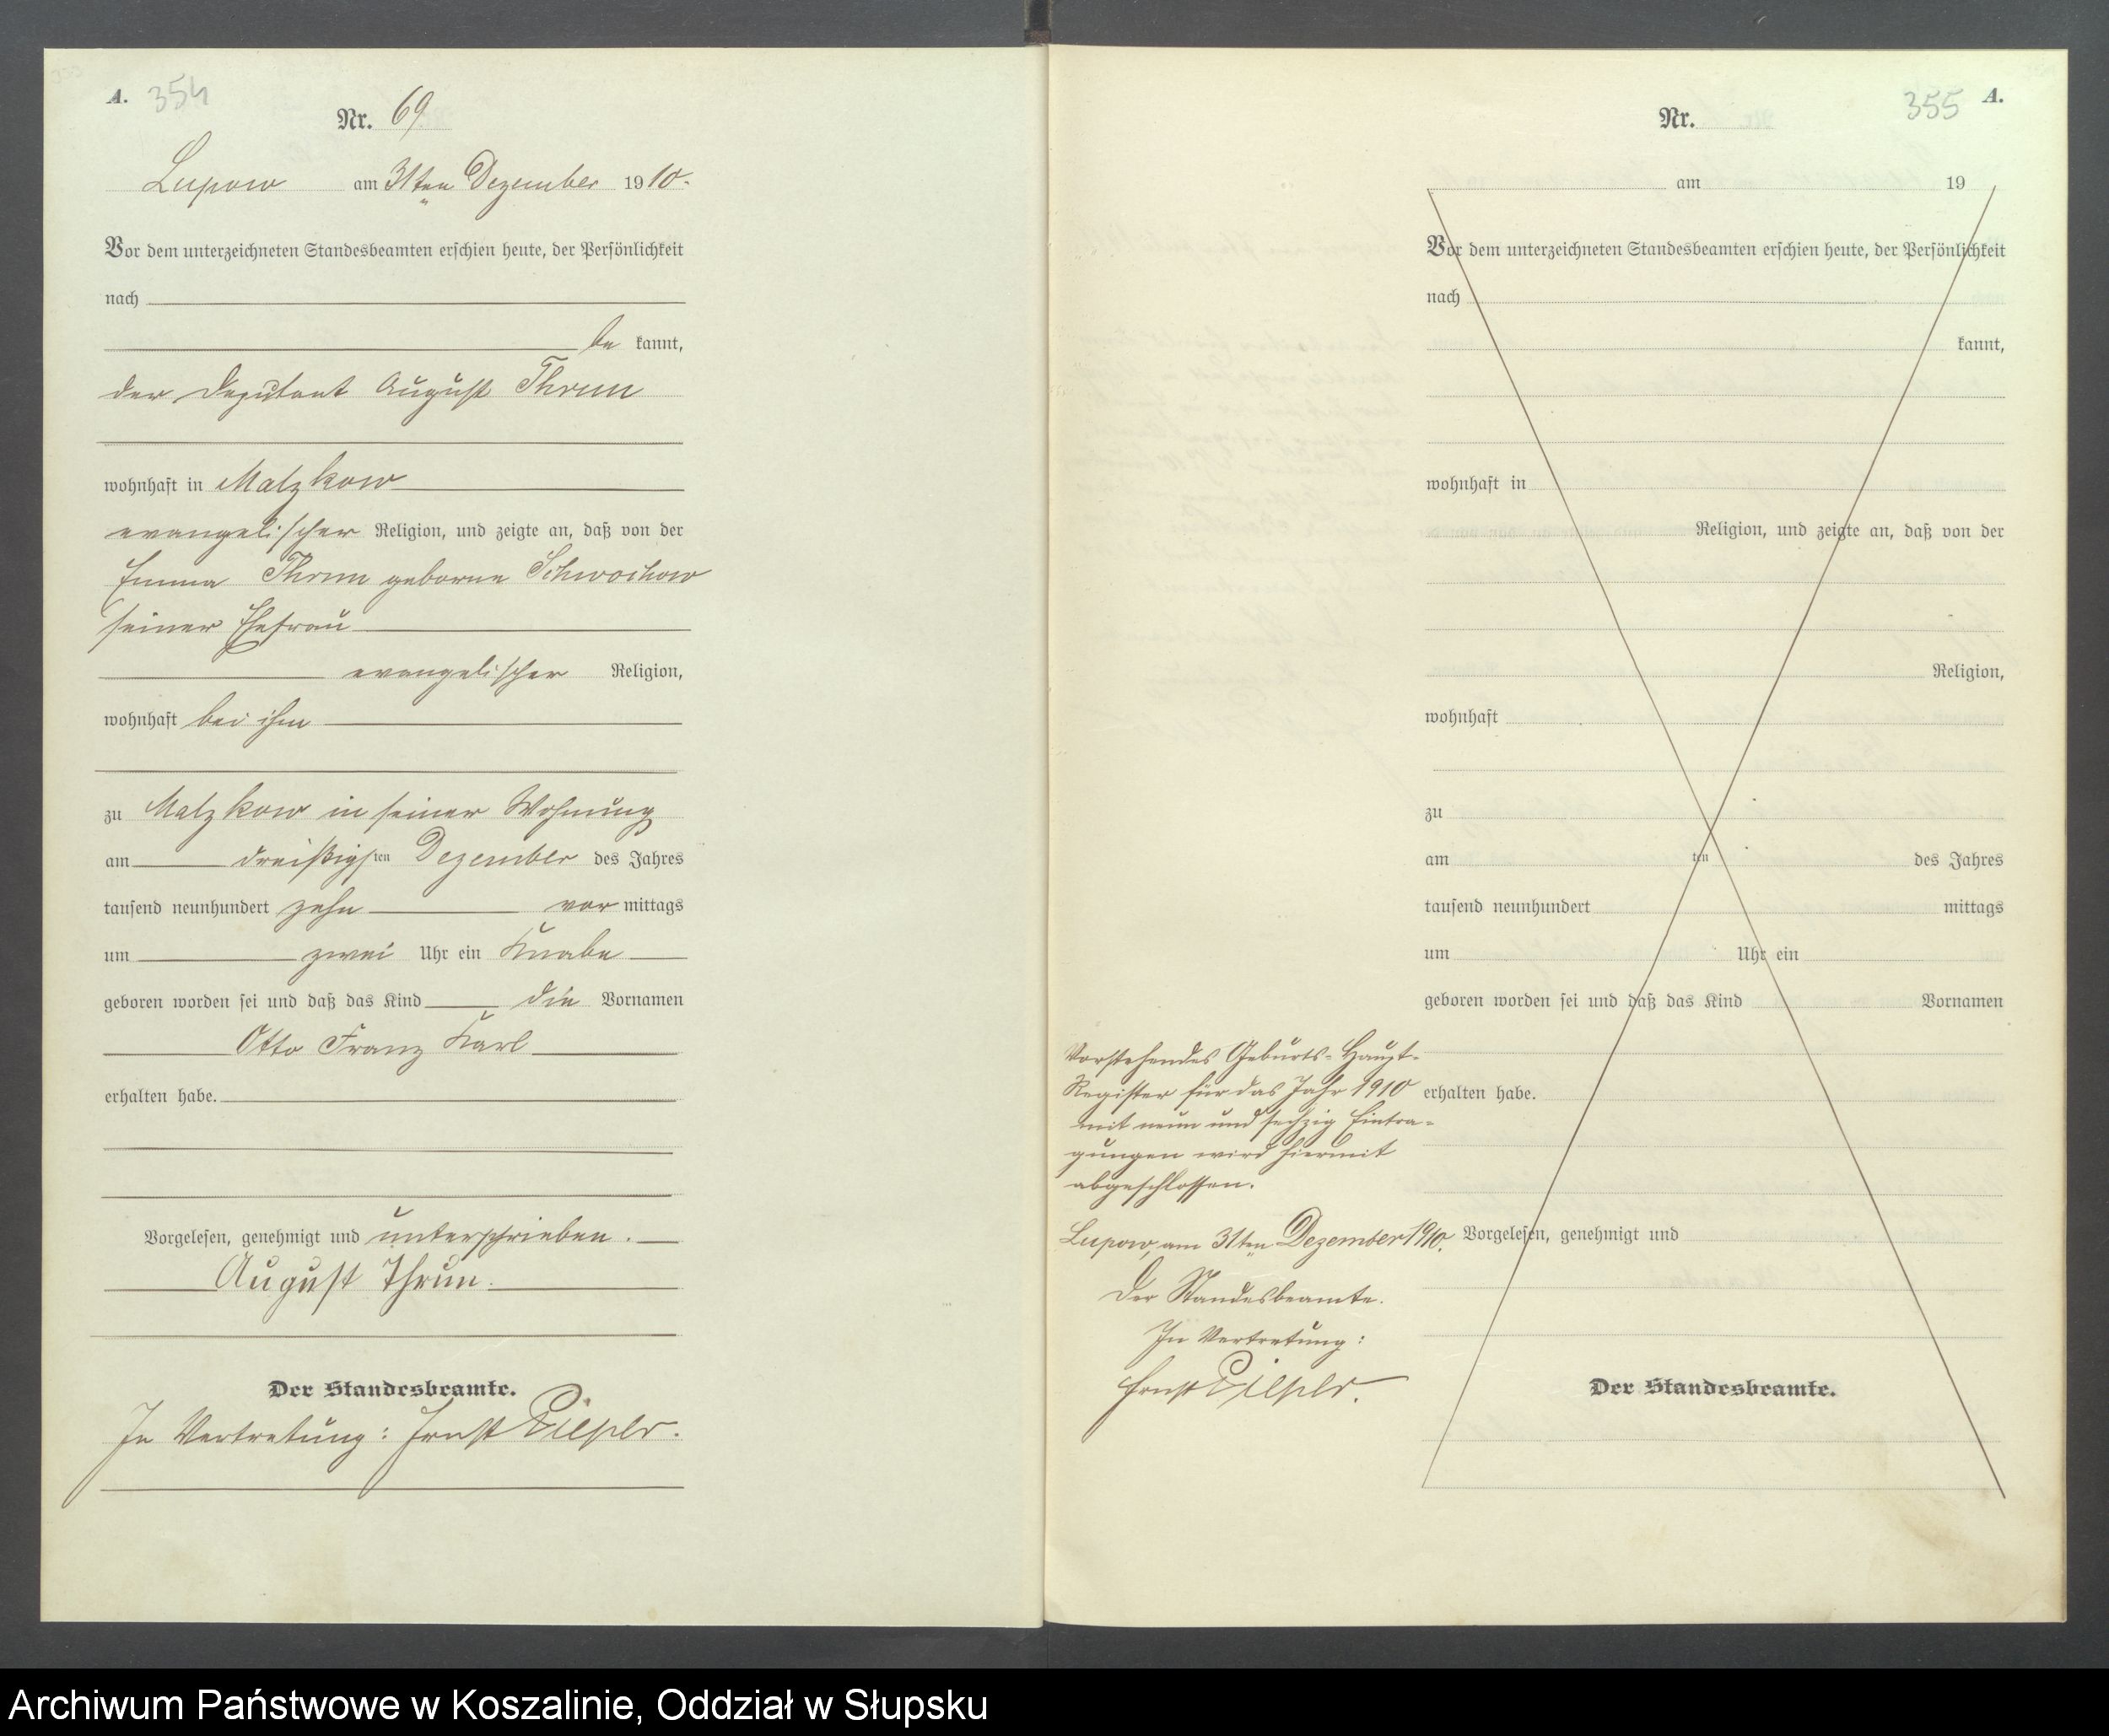 A. 354
Nr. 69
Lupow am 31ten Dezember 1910.
Vor dem unterzeichneten Standesbeamten erschien heute, der Persönlichkeit
nach
be kannt,
der Deputant August Thrun
wohnhaft in Malzkow
evangelischer Religion, und zeigte an, daß von der
Emma Thrun geborne Schwochow
seiner Ehefrau
evangelischer Religion,
wohnhaft bei ihm
zu Malzkow in seiner Wohnung
am dreißigsten Dezember des Jahres
tausend neunhundert zehn vor mittags
um zwei Uhr ein Knabe
geboren worden sei und daß das Kind die Vornamen
Otto Franz Karl
erhalten habe.
Vorgelesen, genehmigt und unterschrieben.
August Thrun.
Der Standesbeamte.
In Vertretung: Ernst Pieper.
355 A.
Nr.
am 19
Vor dem unterzeichneten Standesbeamten erschien heute, der Persönlichkeit
nach
kannt,
wohnhaft in
Religion, und zeigte an, daß von der
Religion,
wohnhaft
zu
am ten des Jahres
tausend neunhundert mittags
um Uhr ein
geboren worden sei und daß das Kind Vornamen
erhalten habe.
Vorgelesen, genehmigt und
Der Standesbeamte.
Vorstehendes Geburts-Haupt-
Register für das Jahr 1910
mit neun und sechzig Eintra-
gungen wird hiermit
abgeschlossen.
Lupow, am 31ten Dezember 1910.
Der Standesbeamte.
In Vertretung:
Ernst Pieper.
Archiwum Państwowe w Koszalinie, Oddział w Słupsku